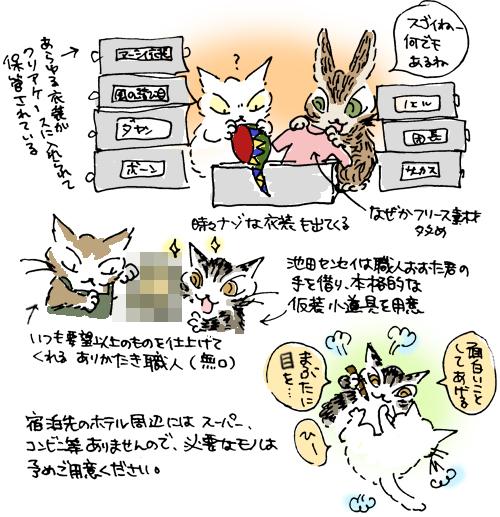 あらゆる衣装が
クリアケースに入れられて
保管されている
マーシィ衣装
ダヤン
ボーン
?
スゴイねー
何でも
あるね
ノエル
団長
サーカス
時々ナゾな衣装も出てくる
なぜかフリース素材
多め
いつも要望以上のものを仕上げて
くれる ありがたき職人(無口)
池田センセイは職人おおた君の
手を借り、本格的な
仮装小道具を用意
面白いこと
してあげる
まぶたに
目を…
ひー
宿泊先のホテル周辺には スーパー、
コンビニ等ありませんので、必要なモノは
予めご用意ください。